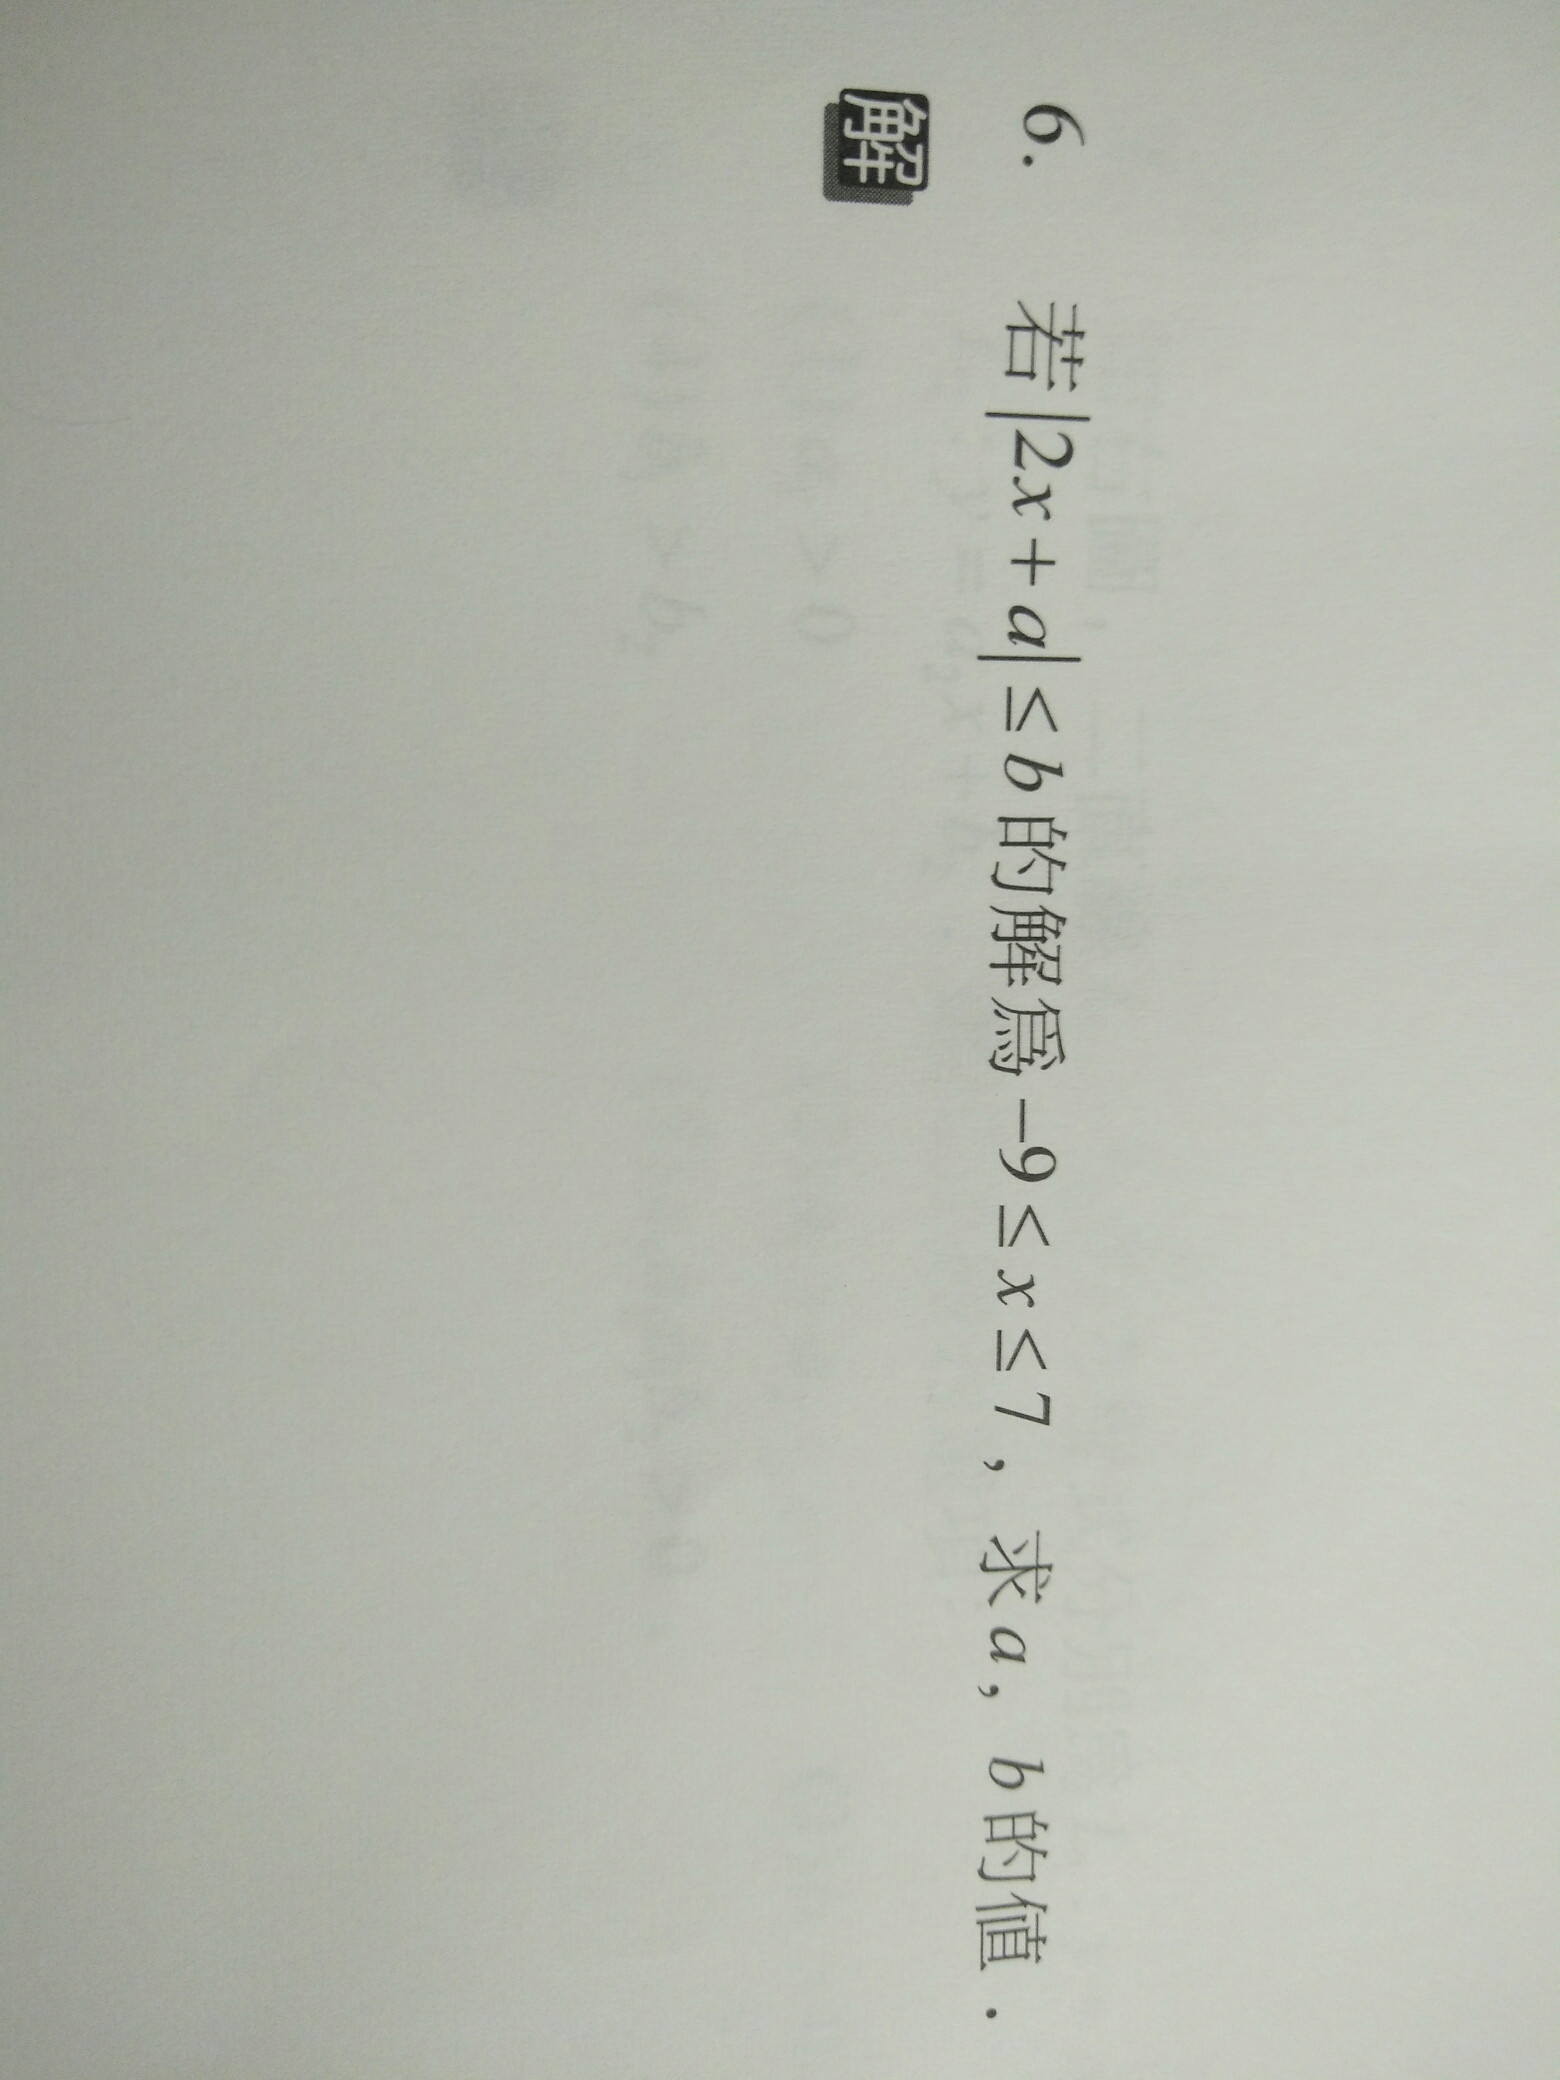 6. 若|2x+a|≤b的解為-9≤x≤7，求a，b的值．
解